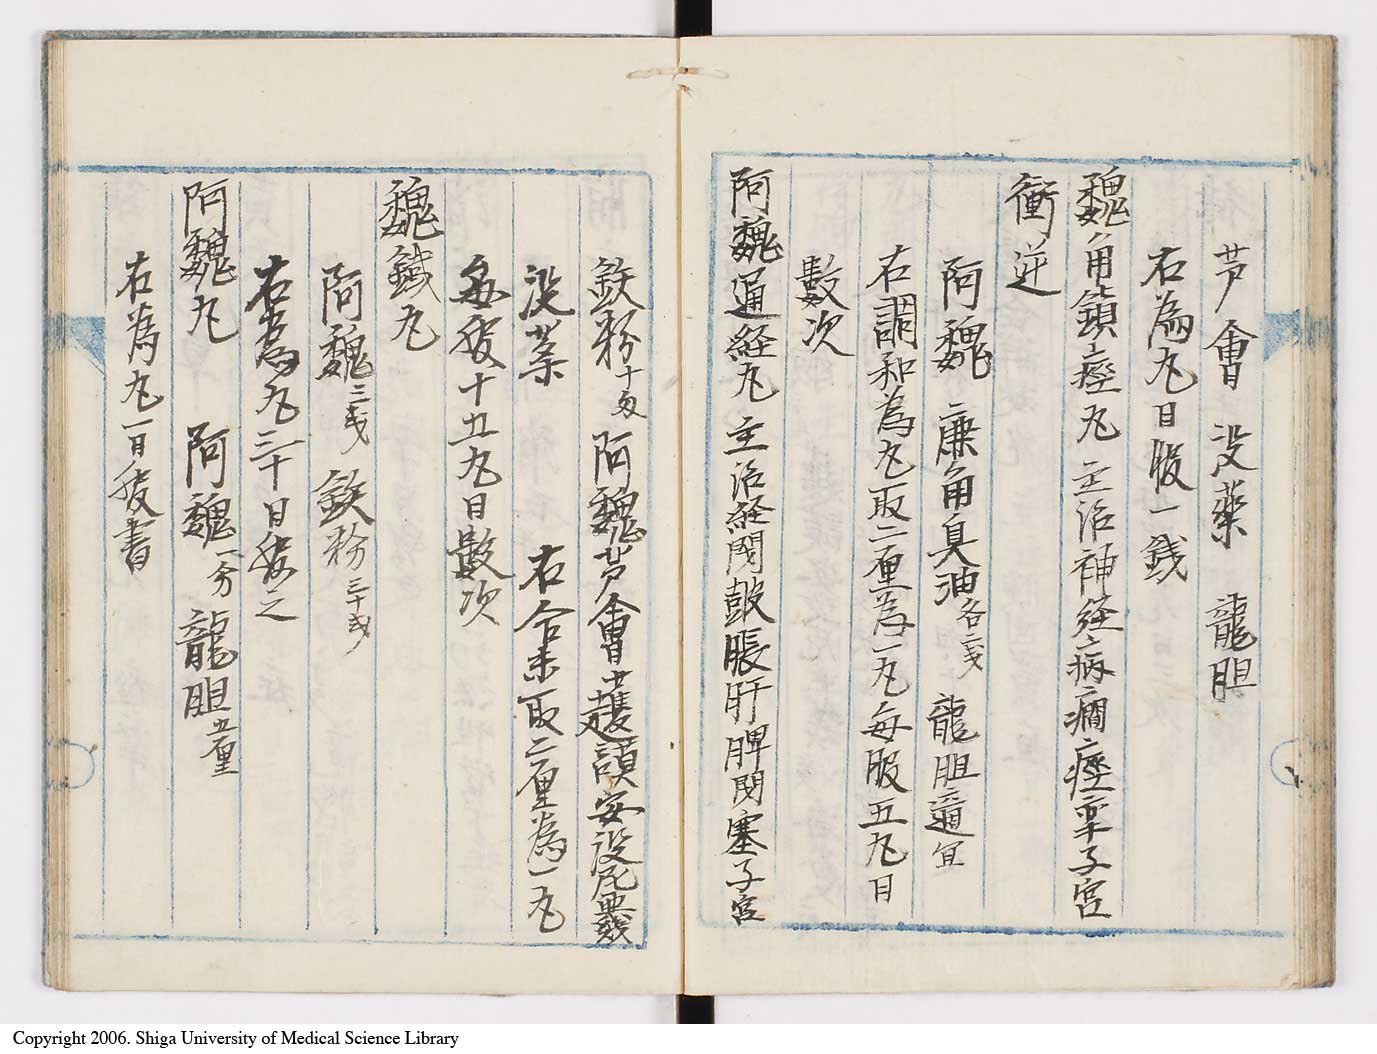 芦會 没藥 龍胆
右為丸日服一銭
魏角鎮痙丸 主治神経病癇痙挛子宮
衝逆
阿魏 鹿角臭油各二戋 龍胆適宜
右調和為丸取二厘為一丸毎服五丸日
數次
阿魏通経丸 主治経閉皷脹肝脾閉塞子宮
鉄粉十匁 阿魏 芦會
没薬 右合末取二厘為一丸
毎服十五丸日數次
魏鐡丸
阿魏三戋 鉄粉三十戋
右為丸三十日服之
阿魏丸 阿魏一分 龍胆五厘
右為丸一日服書
Copyright 2006. Shiga University of Medical Science Library